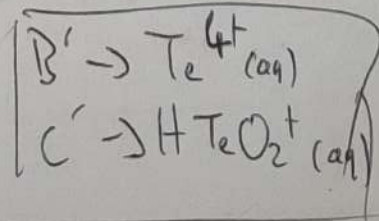 B' → Te⁴⁺ (aq)
C' → HTeO₂⁺ (aq)